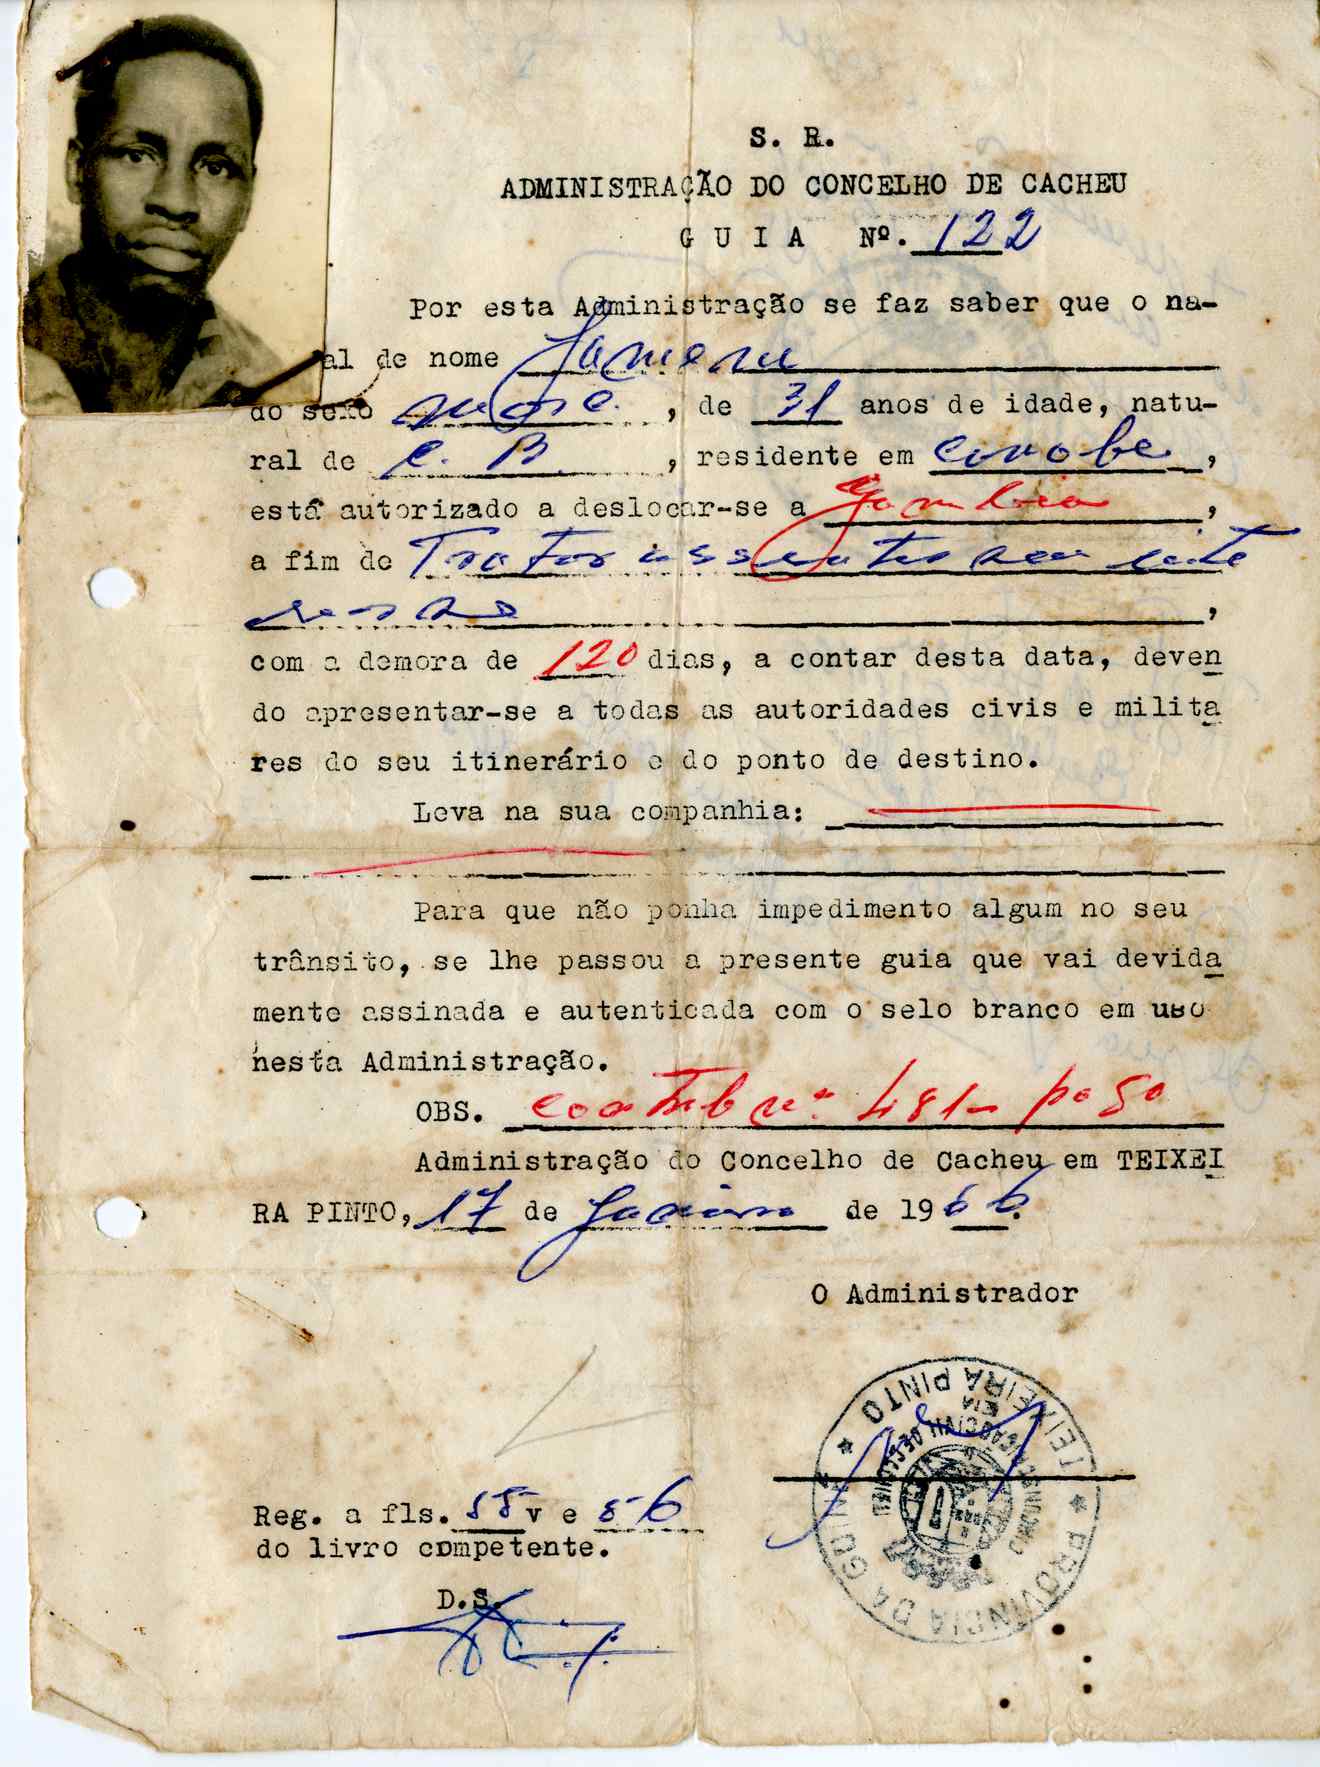 S. R.
ADMINISTRAÇÃO DO CONCELHO DE CACHEU
GUIA Nº. 122
Por esta Administração se faz saber que o na-
al de nome
do sexo masc. , de 31 anos de idade, natu-
ral de C. B. , residente em Corobe ,
está autorizado a deslocar-se a Gambia ,
a fim de Tratar assuntos seu inte
resse ,
com a demora de 120 dias, a contar desta data, deven
do apresentar-se a todas as autoridades civis e milita
res do seu itinerário e do ponto de destino.
Leva na sua companhia:
Para que não ponha impedimento algum no seu
trânsito, se lhe passou a presente guia que vai devida
mente assinada e autenticada com o selo branco em uso
nesta Administração.
OBS. Contrib nº 481- pª 50
Administração do Concelho de Cacheu em TEIXEI
RA PINTO, 17 de Janeiro de 1966.
O Administrador
PROVÍNCIA DA GUINÉ ★ TEIXEIRA PINTO ★
Reg. a fls. 55 v e 56
do livro competente.
D.S.